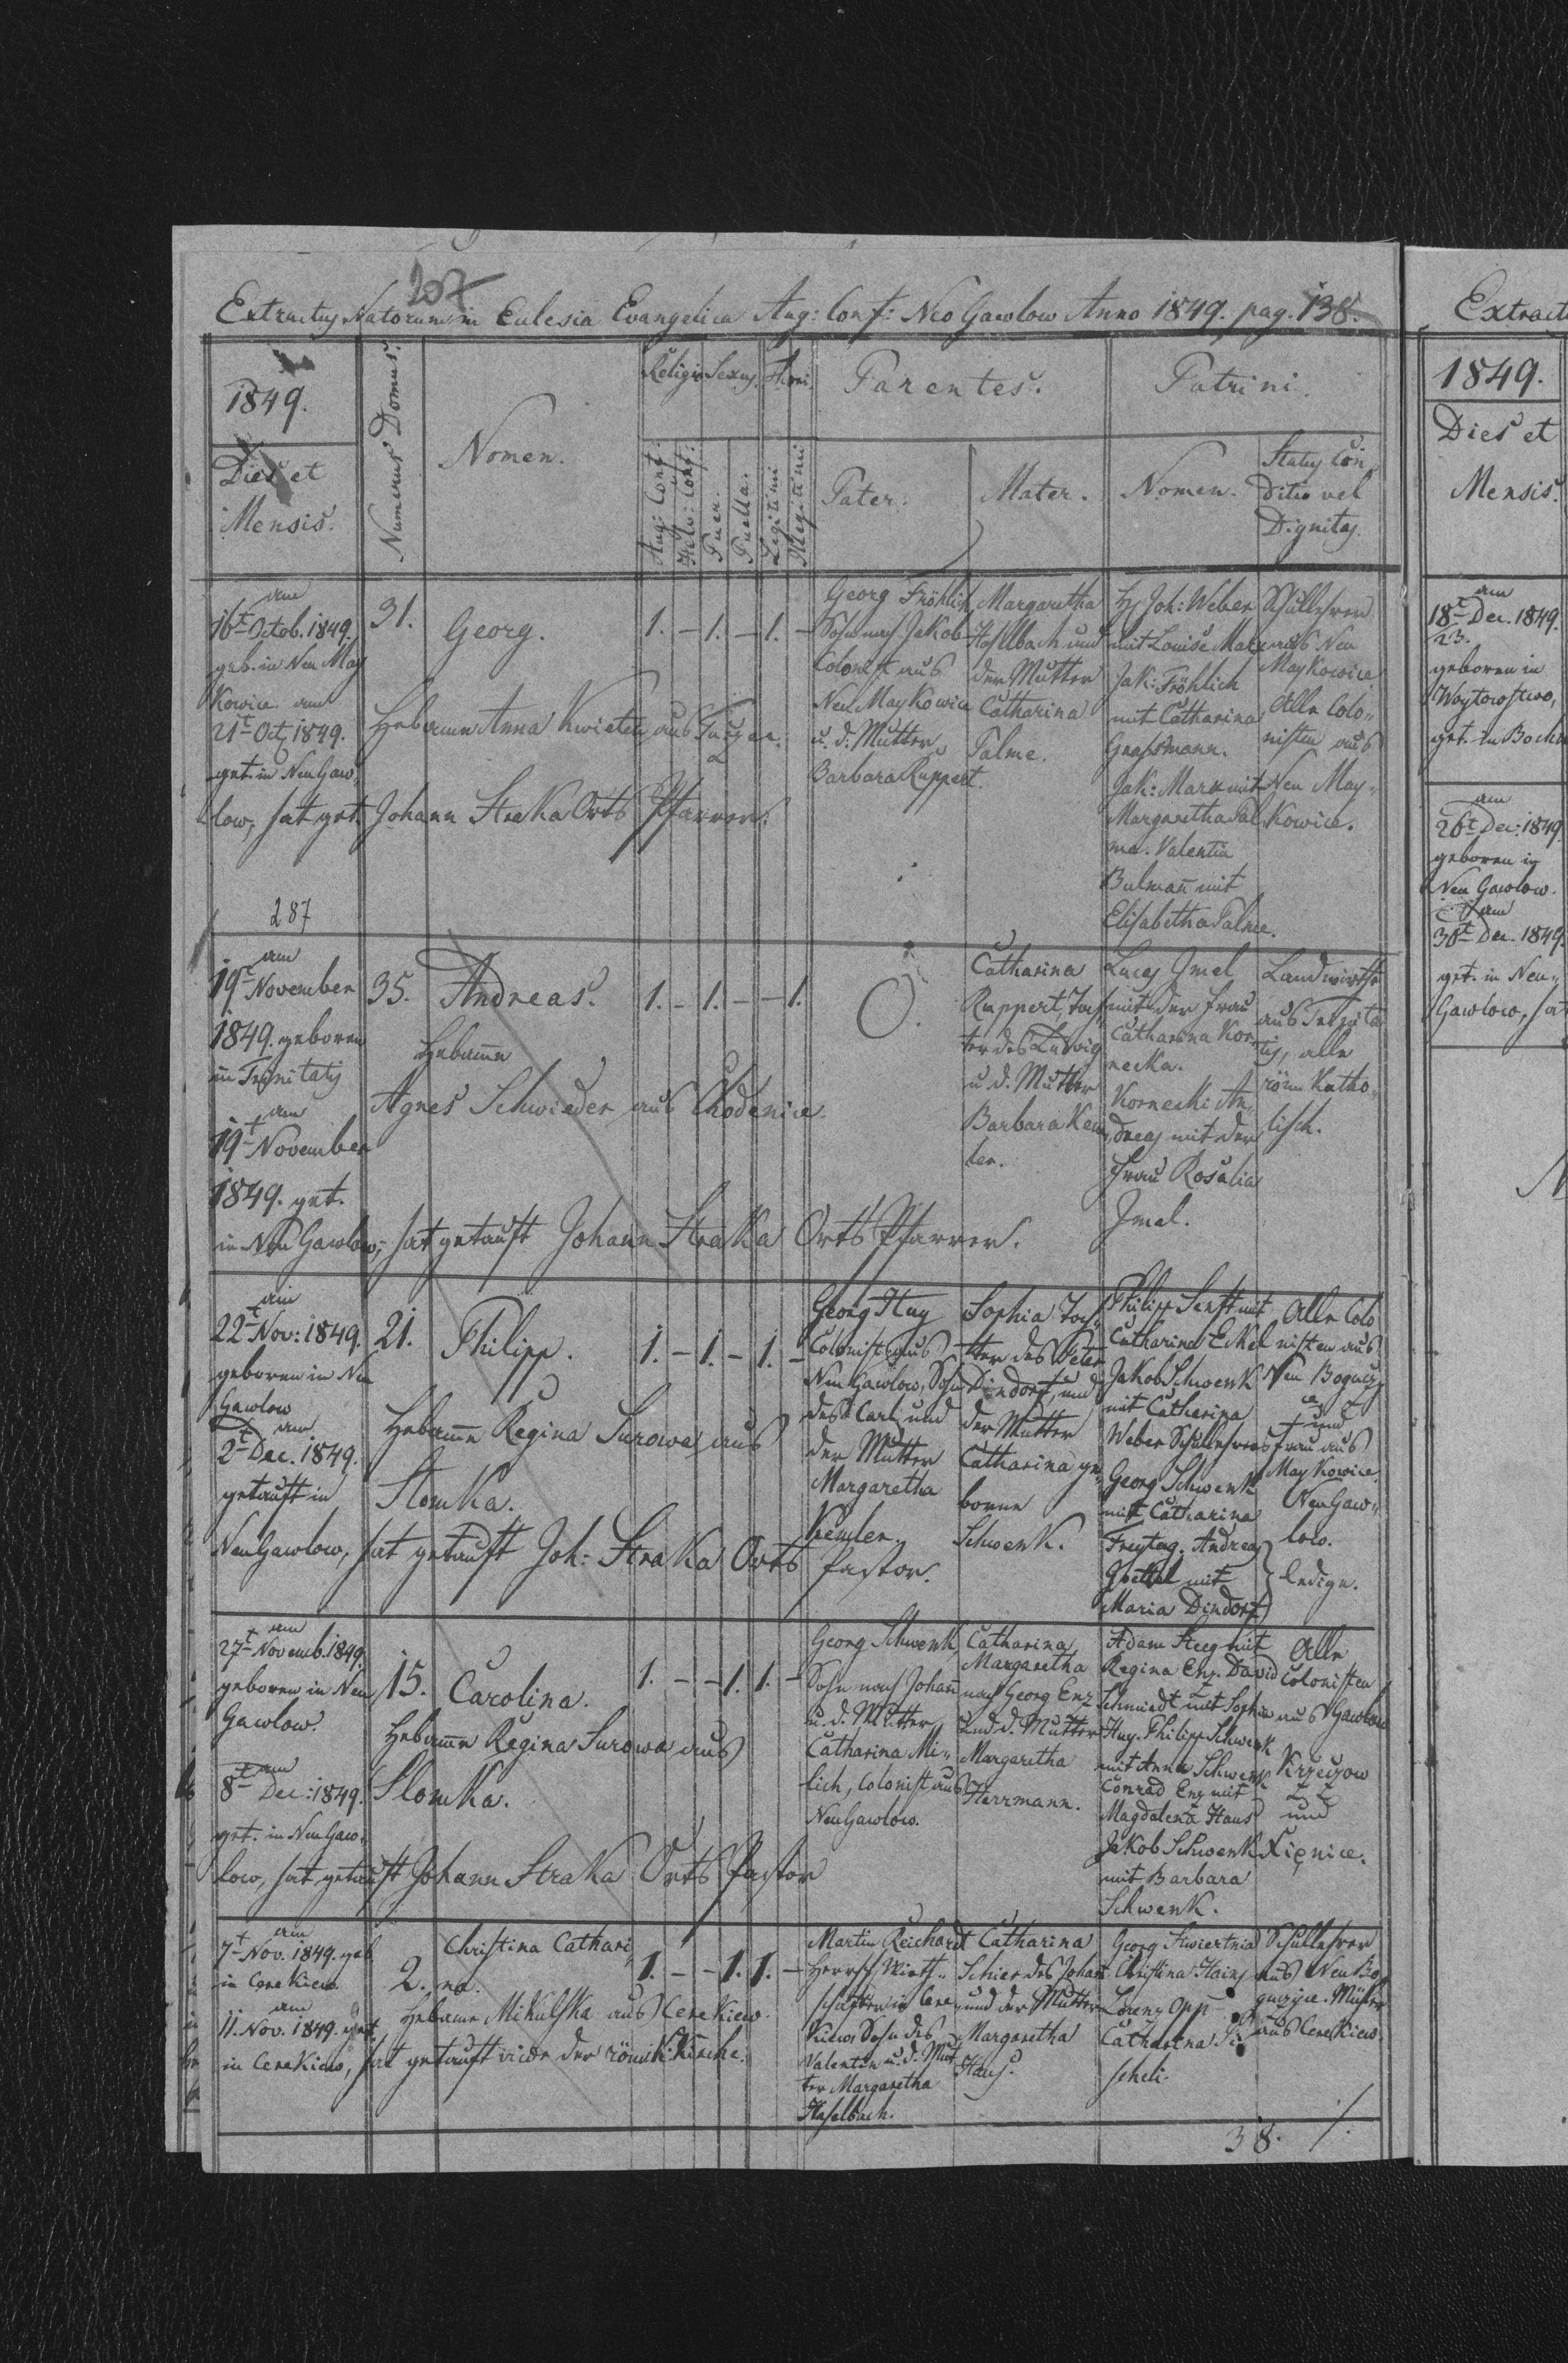 207
Extractus Natorum in Eclesia Evangelica Aug: Conf: Neo Gawlow Anno 1849. pag. 138.
1849.
Dies et
Mensis.
Numerus Domus.
Nomen.
Religio
Aug: Conf:
Helv: Conf:
Sexus.
Puer.
Puella.
Thori.
Legitimi
Illegitimi
Parentes.
Pater.
Mater.
Patrini.
Nomen.
Status Con
ditio vel
Dignitas.
am
16t Octob. 1849.
geb. in Neu May
Kowice am
21t Oct. 1849.
get. in Neu Gaw„
low, hat get. Johann Straka Orts Pfarrer.
31.
Georg.
Hebamme Anna Kwiatek aus
1. – 1. – 1. –
Georg Fröhlich
Sohn nach Jakob
Colonist aus
Neu Maykowice
u. d. Mutter
Barbara Ruppert.
Margaretha
Haßlbach und
der Mutter
Catharina
Palme.
H. Joh: Weber
mit Louise Marx
Jak: Fröhlich
mit Catharina
Graßmann.
Jak: Marx mit
Margaretha Pal
me. Valentin
Bulmañ mit
Elisabetha Palme.
Schullehrer
aus Neu
Maykowice
Alle Colo„
nisten aus
Neu May„
Kowice.
287
am
19t November
1849. geboren
in Trinitatis
am
19t November
1849. get.
in Neu Gawlow, hat getauft Johann Straka Orts Pfarrer.
35.
Andreas.
Hebame
Agnes Schwieder aus Chodenice.
1. – 1. – – 1.
O.
Catharina
Ruppert, Toch
ter des Ludwig
u. d. Mutter
Barbara Kem
ler.
Lucas Jmal
mit der Frau
Catharina Kor„
necka.
Kornecki An„
dreas mit der
Frau Rosalia
Jmal.
Landwirthe
aus Trinita
tis, alle
röm. Katho„
lisch.
am
22t Nov: 1849.
geboren in Neu
Gawlow
am
2t Dec. 1849.
getauft in
Neu Gawlow, hat getauft Joh: Straka Orts Pastor.
21.
Philipp.
Hebame Regina Surowa aus
Slomka.
1. – 1. – 1. –
Georg Huy
Colonist aus
Neu Gawlow, Sohn
des Carl und
der Mutter
Margaretha
Kemler.
Sophia Toch„
ter des Peter
Dindorf, und
der Mutter
Catharina ge„
borene
Schwenk.
Philipp Senft mit
Catharina Eckel
Jakob Schwenk
mit Catharina
Weber Schullehrers
Georg Schwenk
mit Catharina
Freytag. Andreas
Goettel mit
Maria Dindorf
Alle Colo
nisten aus
Neu Boguczy
ce
und
Frau aus
MayKowice.
Neu Gaw„
low.
ledige.
am
27t Novemb. 1849.
geboren in Neu
Gawlow.
am
8t Dec: 1849.
get. in Neu Gaw„
low, hat getauft Johann Straka Orts Pastor
15.
Carolina.
Hebame Regina Surowa aus
Slomka.
1. – – 1. 1. –
Georg Schwenk,
Sohn nach Johañ
u. d. Mutter
Catharina Mi„
lich, Colonist aus
Neu Gawlow.
Catharina
Margaretha
nach Georg Enz
und d. Mutter
Margaretha
Herrmann.
Adam Steeg mit
Regina Enz. David
Schmiedt mit Sophia
Huy. Philipp Schwenk
mit Anna Schwenk
Conrad Enz mit
Magdalena Haus
Jakob Schwenk
mit Barbara
Schwenk.
Alle
Colonisten
aus Gawlow
Krzeczow
und
Xięnice.
am
7t Nov. 1849. geb
in Cerekiew.
am
11. Nov. 1849. get.
in Cerekiew, hat getauft in der römisk: Kirche.
2.
Christina Cathari
na.
Hebame Mikulska aus Cerekiew.
1. – – 1. 1. –
Martin Reichardt
Herrsch. Wirth„
schafter in Cere„
kiew, Sohn des
Valentin u. d. Mut
ter Margaretha
Haßelbach.
Catharina
Schier des Johan
und der Mutter
Margaretha
Haus.
Georg Kwiertnia
Christina Hainz
Lorenz Opp
Catharina
scheli.
Schullehrer
aus Neu Bo„
guczyce. Müller
aus Cerekiew.
38. /.
Extract
1849.
Dies et
Mensis.
am
18t Dec. 1849.
23.
geboren in
Woytowstwo,
get. in Bochn
am
26t Dec: 1849
geboren in
Neu Gawlow.
am
30t Dec. 1849.
get. in Neu„
Gawlow, ha